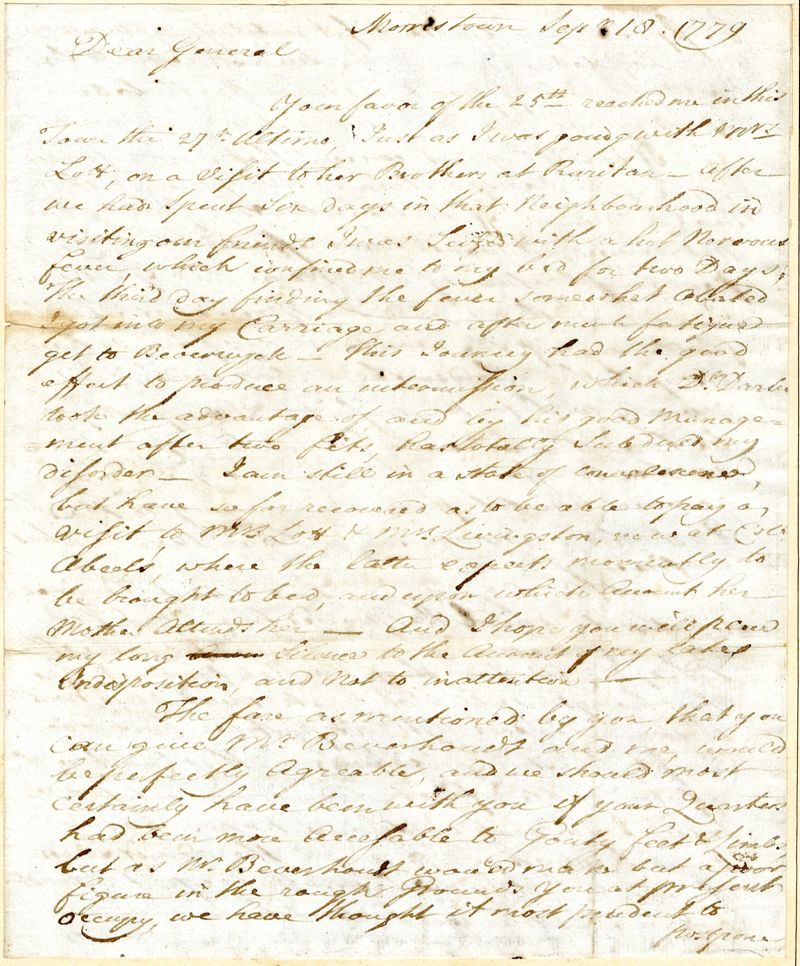 Morristown Sepr 18. 1779
Dear General
Your favor of the 25th reached me in this
Town the 27th Ultimo, Just as I was going with Mrs
Lott, on a Visit to her Brothers at Raritan — after
we had Spent Six days in that Neighbourhood in
visiting our friends I was Seized with a hot Nervous
fever, which confined me to my bed for two Days,
The third day finding the fever somewhat abated
I got into my Carriage and after much fatigue
get to Beverwyck — This Journey had the good
effect to produce an intermission, which Dr Darbe
took the advantage of, and by his good Manage=
=ment after two fits, has totally Subdued my
disorder — I am still in a State of
but have so far recovered as to be able to pay a
visit to Mrs Lott & Mrs Livingston, now at Colo
Abeels, where the latter expects momently to
be brought to bed, and upon which Account her
Mother Attends her — And I hope you will place
my long Silence to the Account of my late
Indisposition, and Not to inattention —
The fare as mentioned by you, that you
can give Mr Beverhoudt and me, would
be perfectly Agreable, and we should most
Certainly have been with you if your Quarters
had been more Accessable to Gouty feet & Limbs
but as Mr Beverhoudt would make but a poor
figure in the rough Grounds you at present
occupy, we have thought it most prudent to
postpone